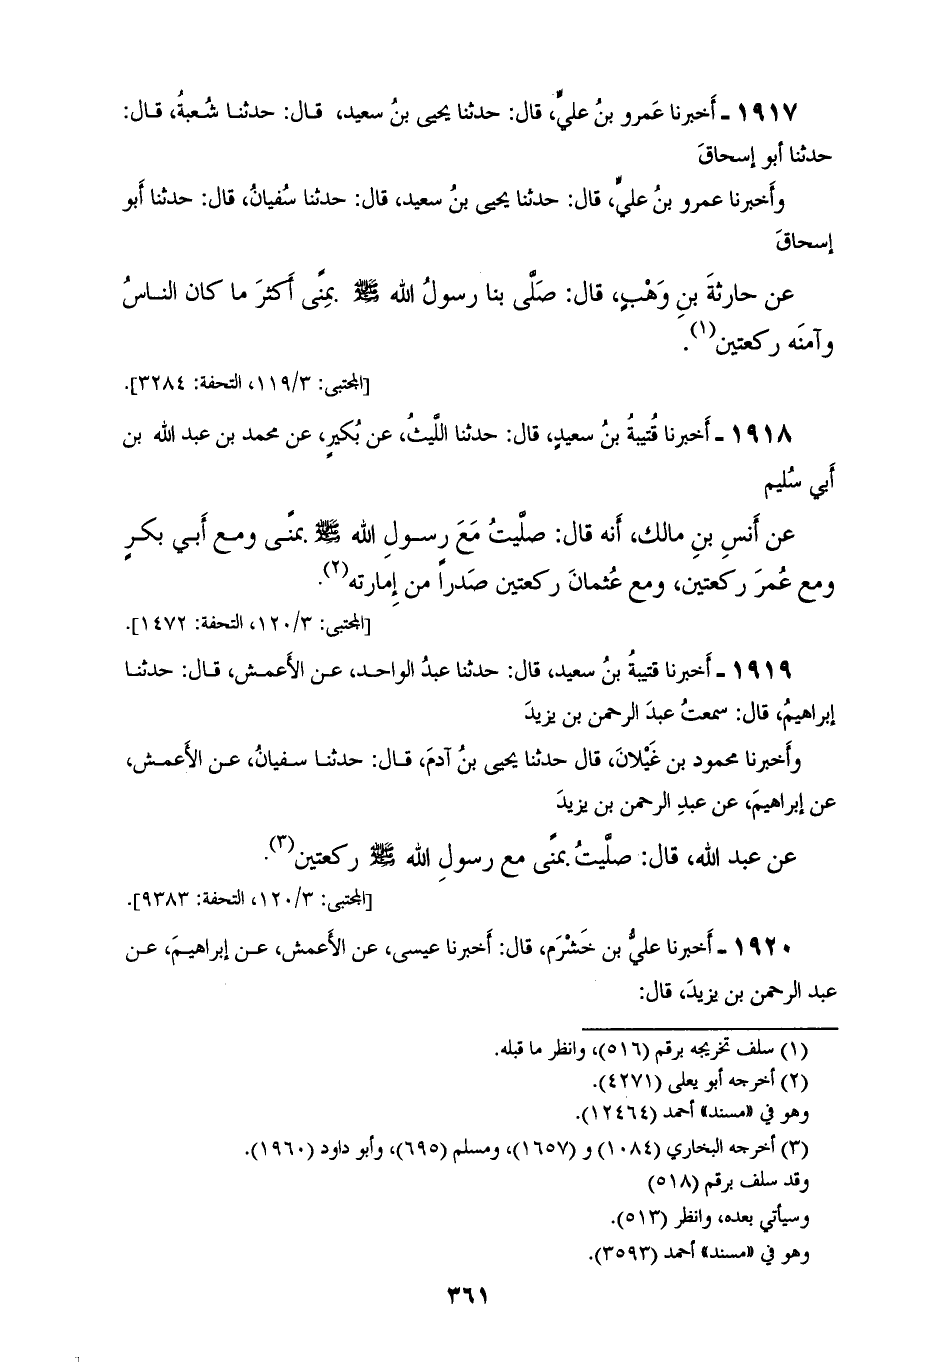 ١٩١٧ ـ أَخبرنا عَمرو بنُ عليٍّ، قال: حدثنا يحيى بنُ سعيد، قال: حدثنا شُعبةُ، قال:
حدثنا أبو إسحاقَ
وأَخبرنا عمرو بنُ عليٍّ، قال: حدثنا يحيى بنُ سعيد، قال: حدثنا سُفيانُ، قال: حدثنا أَبو
إسحاقَ
عن حارثةَ بنِ وَهْبٍ، قال: صَلَّى بنا رسولُ الله ﷺ بمِنًى أَكثرَ ما كان الناسُ
وآمنَه ركعتين(١).
[المجتبى: ١١٩/٣، التحفة: ٣٢٨٤].
١٩١٨ ـ أَخبرنا قُتيبةُ بنُ سعيدٍ، قال: حدثنا اللَّيثُ، عن بُكيرٍ، عن محمد بن عبد الله بن
أَبي سُليم
عن أَنسِ بنِ مالك، أَنه قال: صلَّيتُ مَعَ رسولِ الله ﷺ بمنًى ومع أَبي بكرٍ
ومع عُمرَ ركعتين، ومع عُثمانَ ركعتين صَدراً من إِمارته(٢).
[المجتبى: ١٢٠/٣، التحفة: ١٤٧٢].
١٩١٩ ـ أَخبرنا قتيبةُ بنُ سعيد، قال: حدثنا عبدُ الواحد، عن الأَعمش، قال: حدثنا
إبراهيمُ، قال: سمعتُ عبدَ الرحمن بن يزيدَ
وأَخبرنا محمود بن غَيْلانَ، قال حدثنا يحيى بنُ آدمَ، قال: حدثنا سفيانُ، عن الأَعمش،
عن إبراهيمَ، عن عبدِ الرحمن بن يزيدَ
عن عبد الله، قال: صلَّيتُ بمنًى مع رسولِ الله ﷺ ركعتين(٣).
[المجتبى: ١٢٠/٣، التحفة: ٩٣٨٣].
١٩٢٠ ـ أَخبرنا عليُّ بن خَشْرَم، قال: أَخبرنا عيسى، عن الأَعمش، عن إبراهيمَ، عن
عبد الرحمن بن يزيدَ، قال:
(١) سلف تخريجه برقم (٥١٦)، وانظر ما قبله.
(٢) أخرجه أبو يعلى (٤٢٧١).
وهو في «مسند» أحمد (١٢٤٦٤).
(٣) أخرجه البخاري (١٠٨٤) و (١٦٥٧)، ومسلم (٦٩٥)، وأبو داود (١٩٦٠).
وقد سلف برقم (٥١٨)
وسيأتي بعده، وانظر (٥١٣).
وهو في «مسند» أحمد (٣٥٩٣).
٣٦١